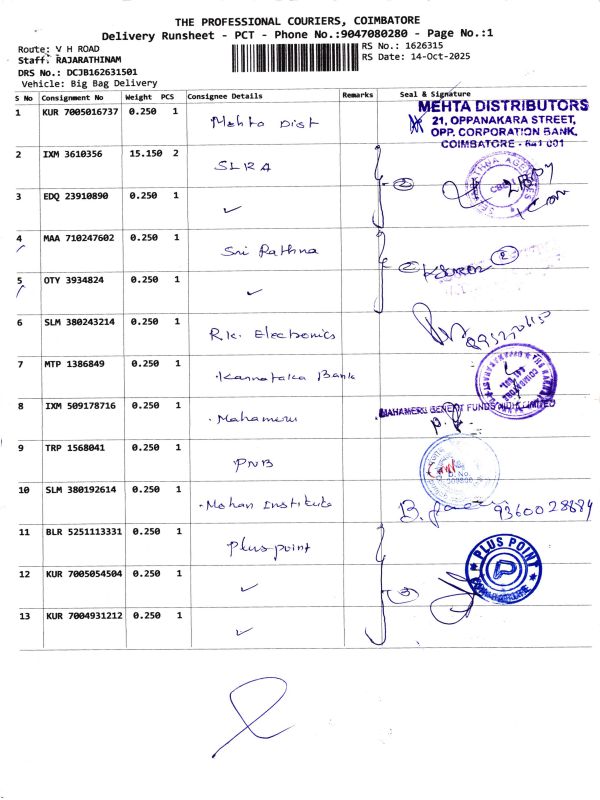 THE PROFESSIONAL COURIERS, COIMBATORE
Delivery Runsheet - PCT - Phone No.:9047080280 - Page No.:1
Route: V H ROAD
RS No.: 1626315
Staff: RAJARATHINAM
RS Date: 14-Oct-2025
DRS No.: DCJB162631501
Vehicle: Big Bag Delivery
S No Consignment No Weight PCS Consignee Details Remarks Seal & Signature
1 KUR 7005016737 0.250 1 Mehta Dist
MEHTA DISTRIBUTORS
21, OPPANAKARA STREET,
OPP. CORPORATION BANK,
COIMBATORE - 641 001
2 IXM 3610356 15.150 2 SLRA
3 EDQ 23910890 0.250 1 ✓ 2
4 MAA 710247602 0.250 1 Sri Rathna
5 OTY 3934824 0.250 1 ✓ 2
6 SLM 380243214 0.250 1 R.K. Electronics
7 MTP 1386849 0.250 1 Karnataka Bank
8 IXM 509178716 0.250 1 Mahameru
MAHAMERU BENEFIT FUNDS NIDHI LIMITED
9 TRP 1568041 0.250 1 PNB
10 SLM 380192614 0.250 1 Mohan Institute 9360028684
11 BLR 5251113331 0.250 1 Plus point
PLUS POINT
P
COIMBATORE
12 KUR 7005054504 0.250 1 ✓ 3
13 KUR 7004931212 0.250 1 ✓